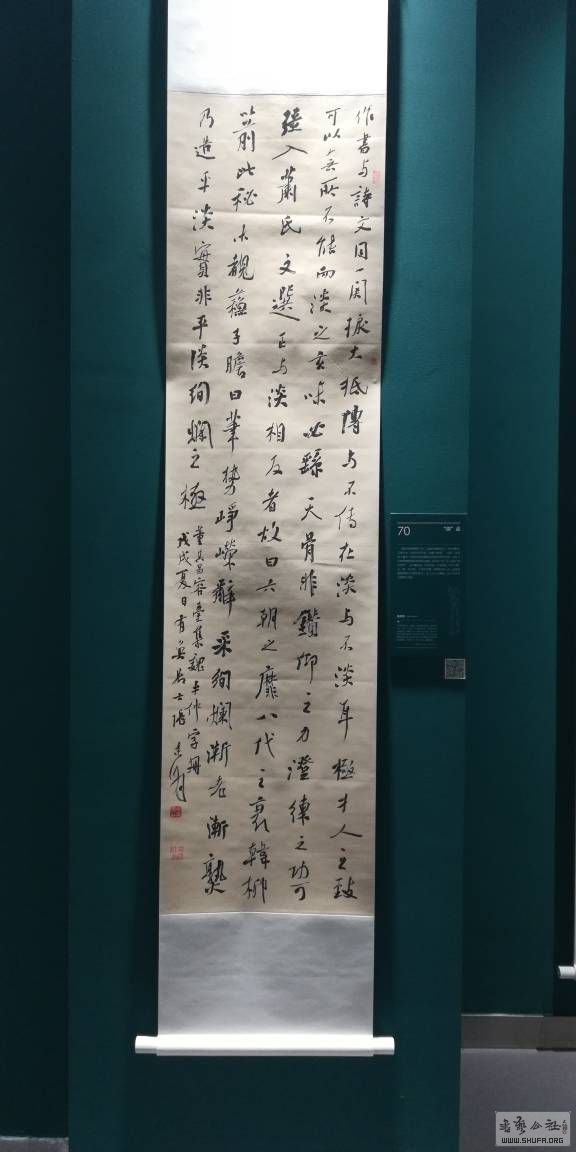 作書与詩文同一關捩大抵傳与不傳在淡与不淡耳極才人之致
可以無所不能而淡之玄味必繇天骨非鑽仰之力澄練之功可
强入蕭氏文選正与淡相反者故曰六朝之靡八代之衰韓柳
以前此秘未覩蘇子瞻曰筆勢崢嶸辭采绚爛漸老漸熟
乃造平淡實非平淡绚爛之極
董其昌容臺集魏平仲字冊
戊戌夏日
居士
70
書藝公社
WWW.SHUFA.ORG